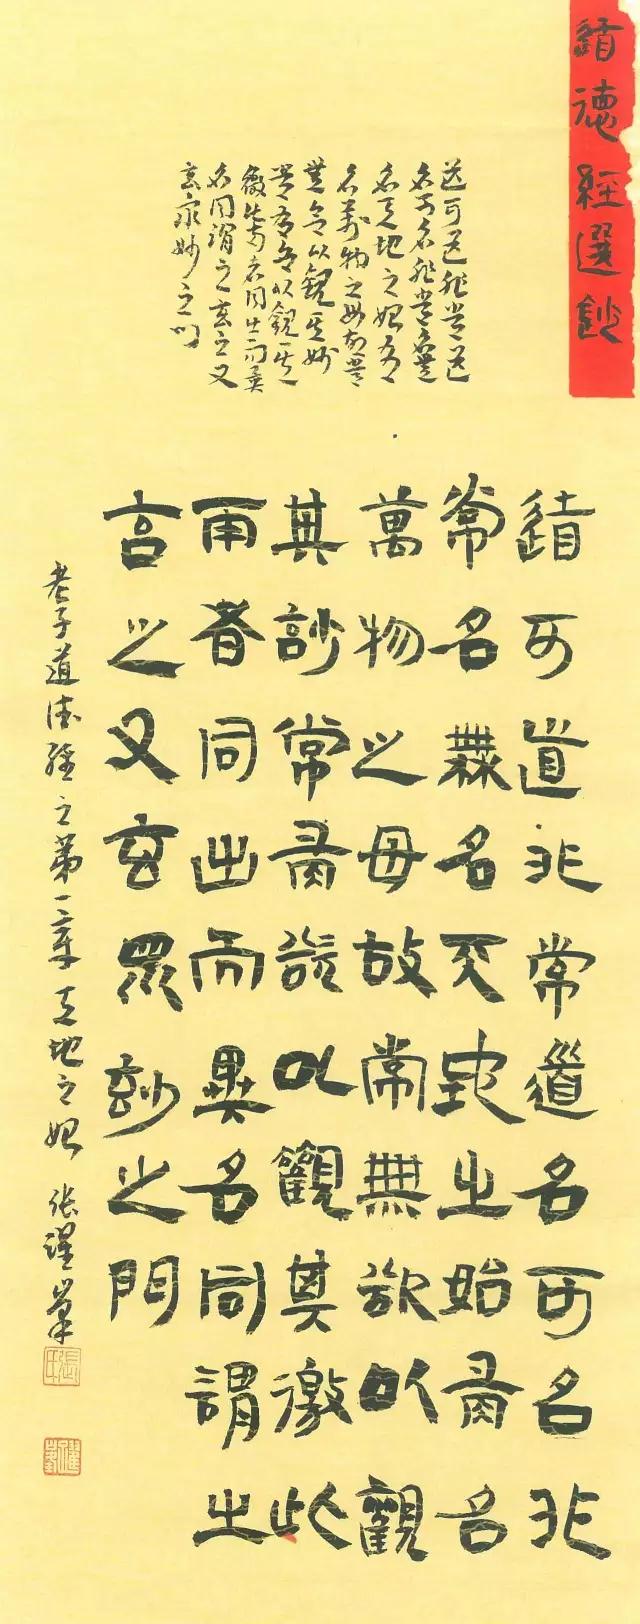 道德經選鈔
道可道非常道
名可名非常名無
名天地之始有
名萬物之母故常
無欲以觀其妙
常有欲以觀其
徼此兩者同出而異
名同謂之玄之又
玄眾妙之门
道可道非常道名可名非
常名無名天地之始有名
萬物之母故常無欲以觀
其妙常有欲以觀其徼此
兩者同出而異名同謂之
玄之又玄眾妙之門
老子道德經之第一章天地之始 张